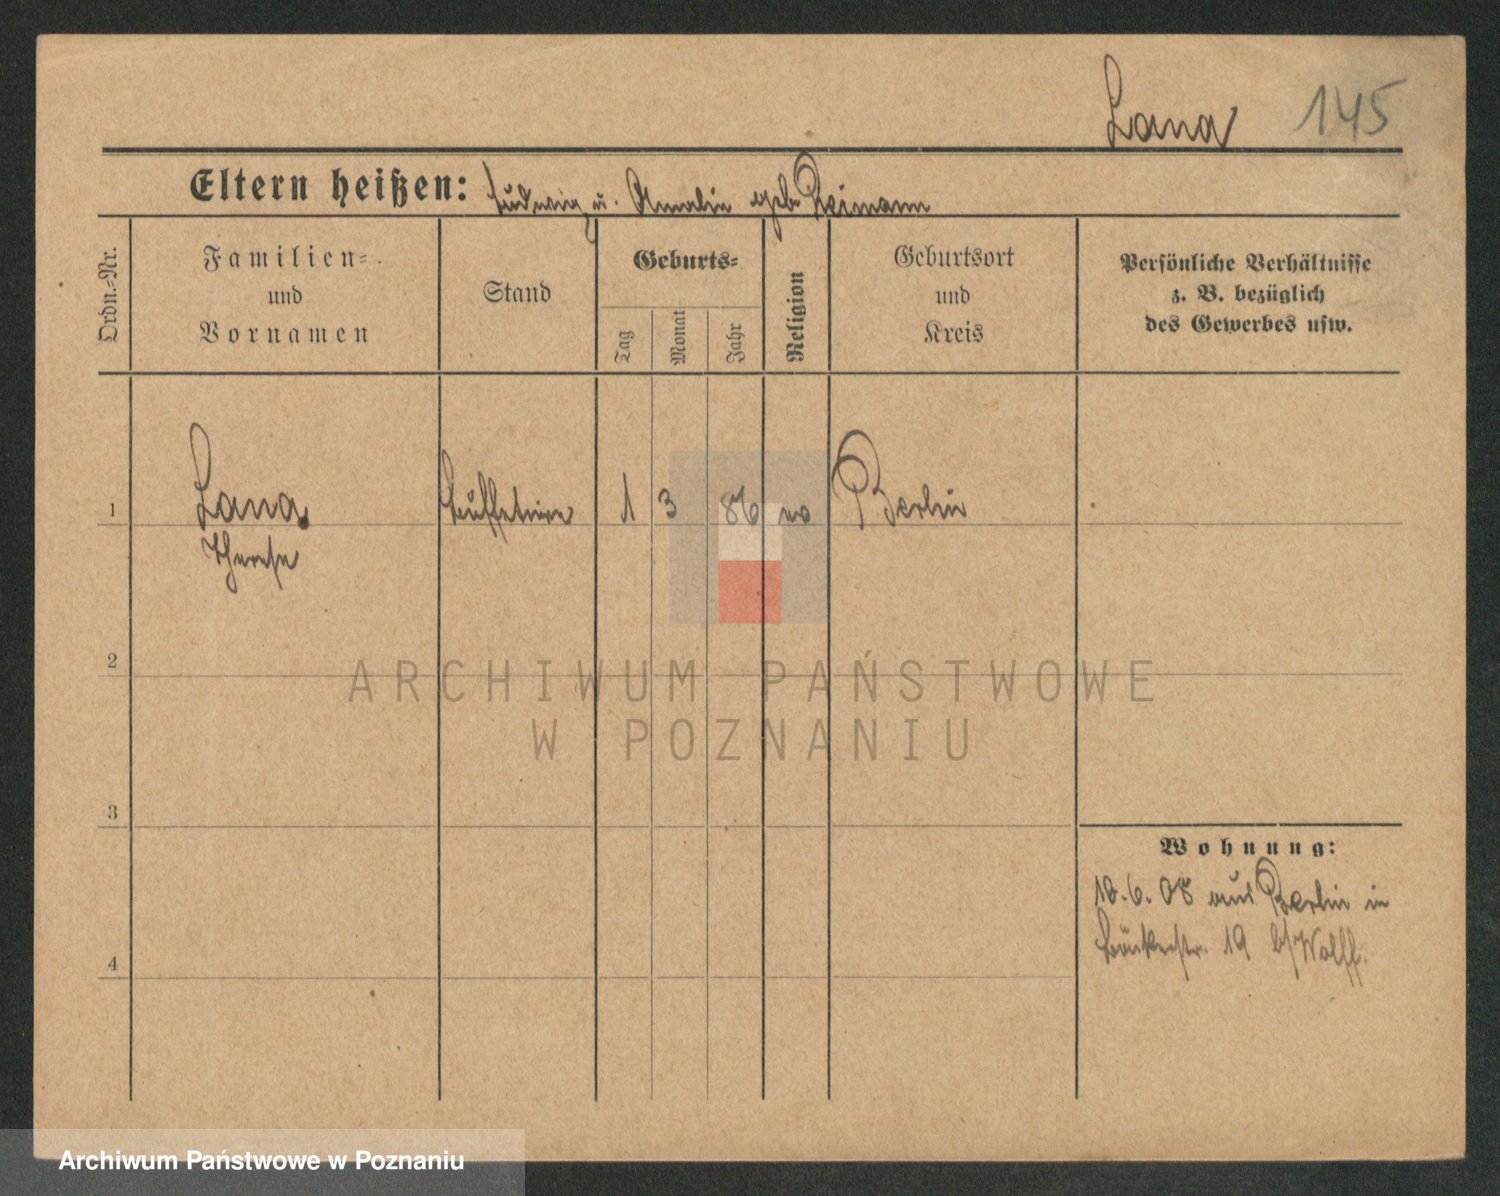 Lana 145
Eltern heißen: Ludwig u. Amalie geb. Reimann
Ordn.-Nr.
Familien-
und
Vornamen
Stand
Geburts-
Tag
Monat
Jahr
Religion
Geburtsort
und
Kreis
Persönliche Verhältnisse
z. B. bezüglich
des Gewerbes usw.
1 Lana Buffetiere 1 3 86 Berlin
Therese
2
ARCHIWUM PAŃSTWOWE
W POZNANIU
3
Wohnung:
10.6.08 aus Berlin in
Bäckerstr. 19 b/Wolff.
4
Archiwum Państwowe w Poznaniu